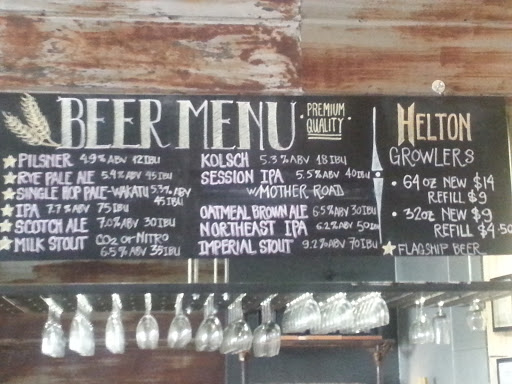 BEER MENU
PREMIUM
QUALITY
PILSNER 4.9% ABV 12 IBU
RYE PALE ALE 5.9% ABV 45 IBU
SINGLE HOP PALE-WAKATU 5.3% ABV
45 IBU
IPA 7.7% ABV 75 IBU
SCOTCH ALE 7.0% ABV 30 IBU
MILK STOUT CO2 or NITRO
6.5% ABV 35 IBU
KOLSCH 5.3% ABV 18 IBU
SESSION IPA 5.5% ABV 40 IBU
W/MOTHER ROAD
OATMEAL BROWN ALE 6.5% ABV 30 IBU
NORTHEAST IPA 6.2% ABV 50 IBU
IMPERIAL STOUT 9.2% ABV 70 IBU
HELTON
GROWLERS
• 64oz NEW $14
REFILL $9
• 32oz NEW $9
REFILL $4.50
FLAGSHIP BEER